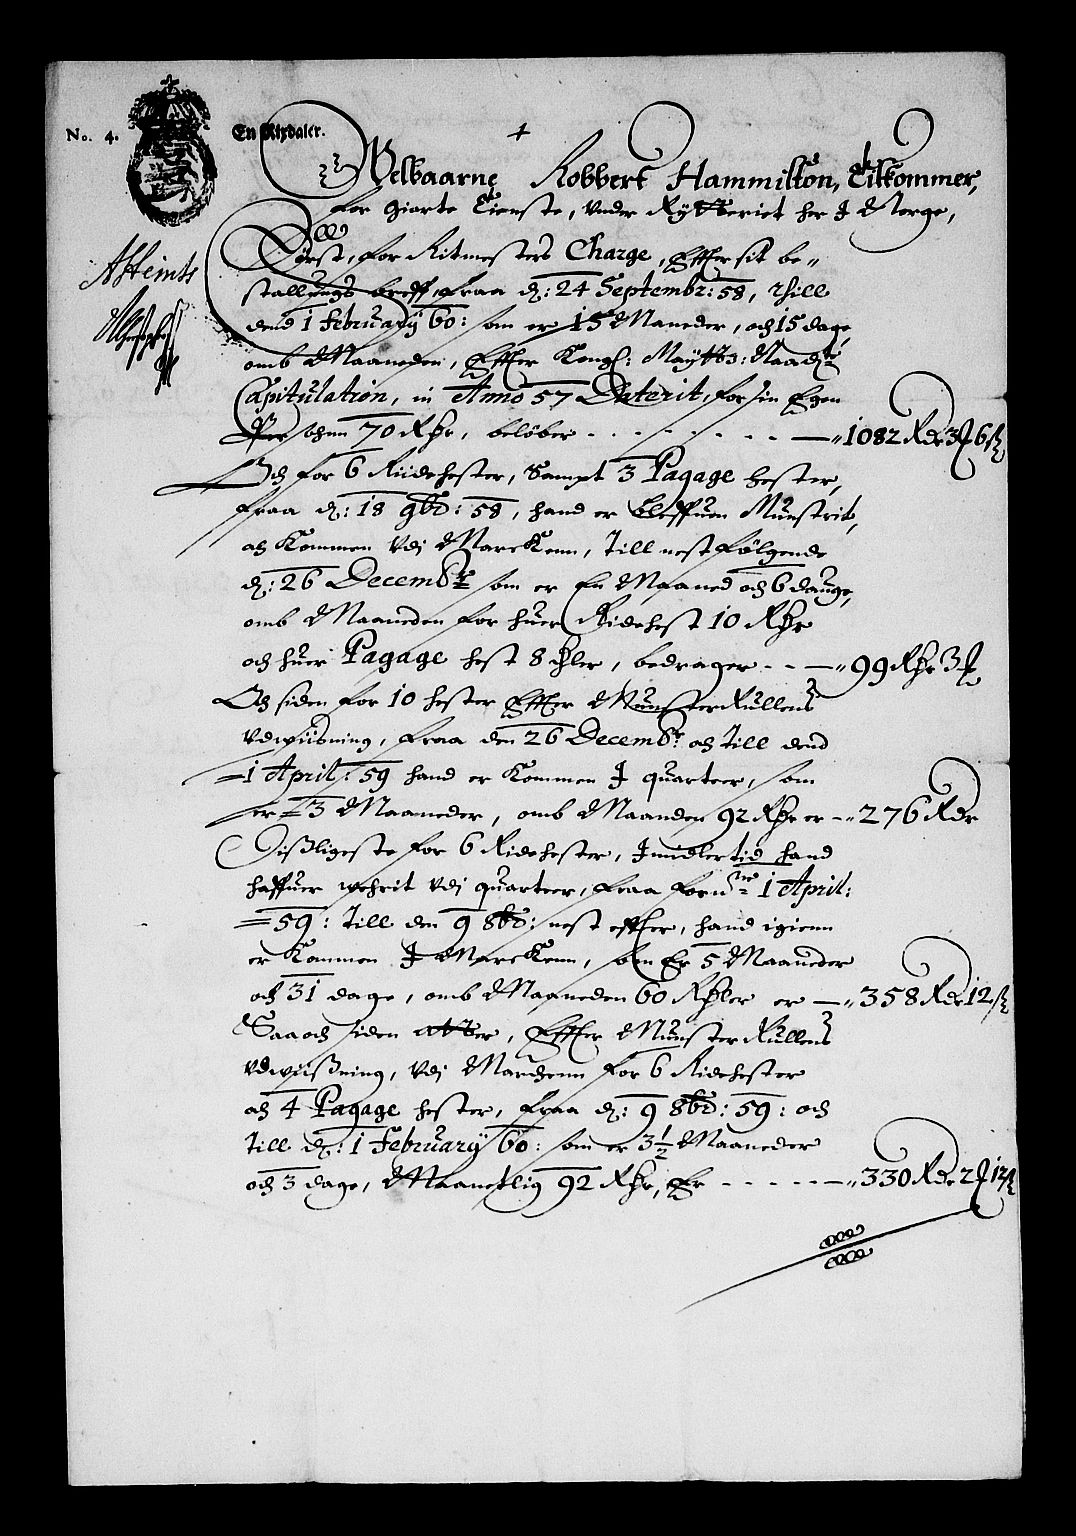 No. 4.
En Rixdaler.
1
Welbaarne Robbert Hammilton, Tilkommer,
for giorte Tieniste, under Rytteriet her i Norge,
Først, for Ritmesters Charge, Effter sit be„
stallings breff, fraa d: 24 Septembr: 58, thill
dend 1 February 60: som er 15 Maaneder, och 15 dage,
omb Maaneden, Effter Kongl: Maytts: Naadste
Capitulation, in Anno 57 Daterit, for sin Egen
Persohnn 70 Rdr, beløber - - - - - - - „1082 Rdr 3 6 ß
Och for 6 Riidehester, Sampt 3 Pagage hester,
fraa d: 18 9br: 58, hand er bleffuen Munstrit,
och Kommen Udj Marckenn, Till nest følgende
d: 26 Decembr som er En Maaned och 6 dauge,
omb Maaneden for huer Ridehest 10 Rdr
och huer Pagage hest 8 dler, bedrager - - - „99 Rdr 3
Och siden for 10 hester Effter Munster Rullens
Udwiisning, fraa den 26 Decembr och till dend
1 April: 59 hand er Kommen i quarteer, som
er 3 Maaneder, omb Maanden 92 Rdr er - „276 Rdr
Dißligeste for 6 Ridehester, imidlertid hand
haffuer wehrit udj quarteer, fraa fornne 1 April:
59: Till den 9 8br: nest effter, hand igienn
er Kommen i Marckenn, som Er 5 Maaneder
och 31 dage, omb Maaneden 60 Rdler er - „358 Rdr 12 ß
Saa och siden atter, Effter Munster Rullens
Udwiißning, Udj Marckenn for 6 Ridehester
och 4 Pagage hester, fraa d: 9 8br: 59: och
till d: 1 February 60: som er 3½ Maaneder
och 3 dage, Maanetlig 92 Rdr, Er - - - - - „330 Rdr 2 12 ß